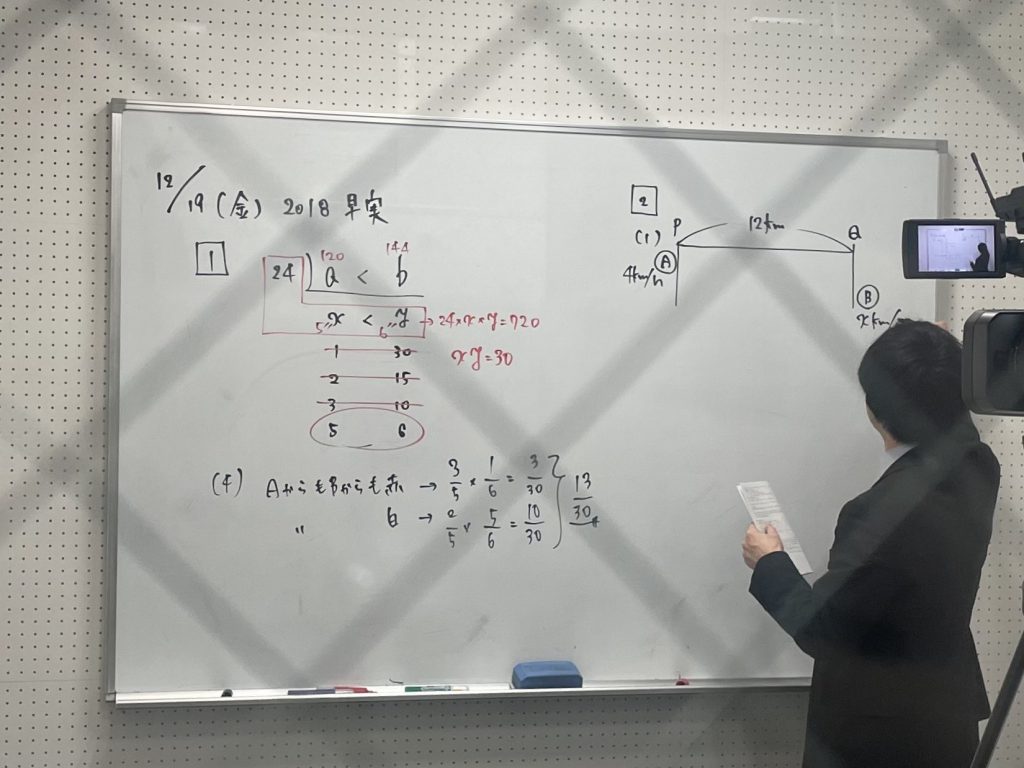 12/19(金) 2018 早実
1
120 144
24 ) a < b
5,, x < 6,, y → 24×x×y=720
1 30 xy=30
2 15
3 10
5 6
(4) AからもBからも赤 → 3/5 × 1/6 = 3/30
〃 白 → 2/5 × 5/6 = 10/30
13/30
2
(1) P 12km Q
A
4km/h
B
xkm/